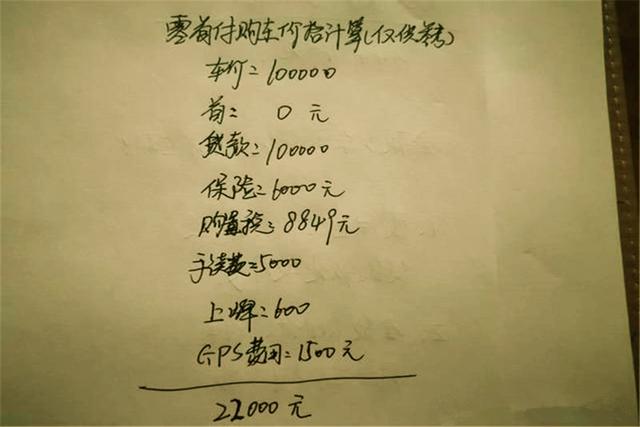 零首付购车价格计算(仅供参考)
车价=100000
首= 0元
贷款=100000
保险=6000元
购置税=8849元
手续费=5000
上牌=600
GPS费用=1500元
22000元